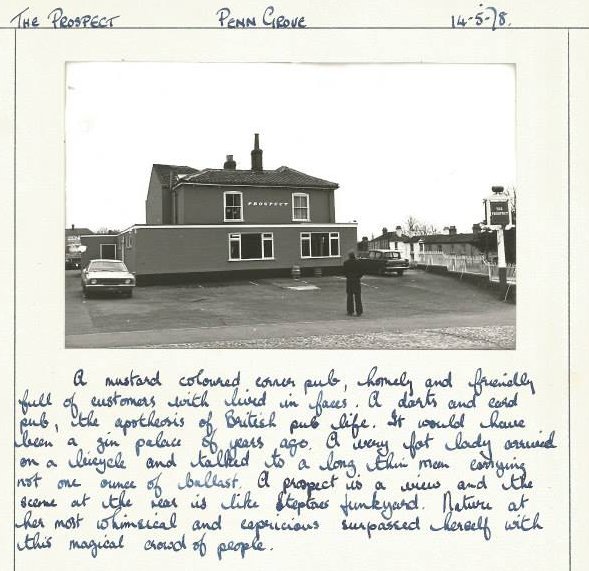 THE PROSPECT PENN GROVE 14-5-78.
PROSPECT
THE PROSPECT
A mustard coloured corner pub, homely and friendly
full of customers with lived in faces. A darts and card
pub, the apotheosis of British pub life. It would have
been a gin palace of years ago. A very fat lady arrived
on a bicycle and talked to a long thin man carrying
not one ounce of ballast. A prospect is a view and the
scene at the rear is like steptoes junkyard. Nature at
her most whimsical and capricious surpassed herself with
this magical crowd of people.